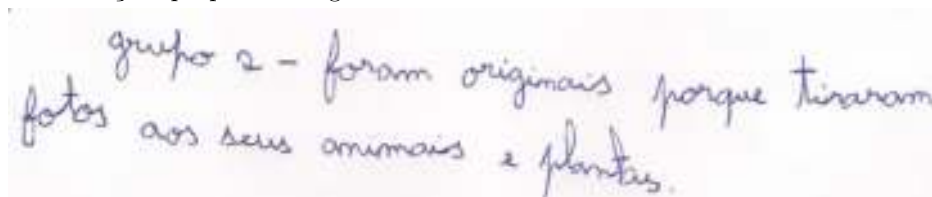 grupo 2 - foram originais porque tiraram
fotos aos seus animais e plantas.